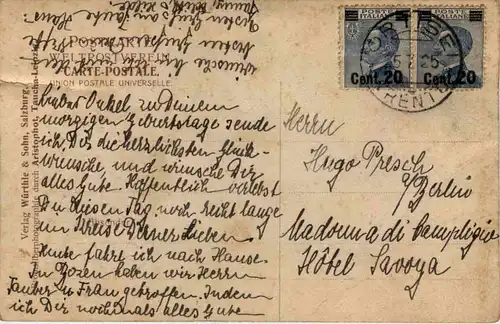 POSTKARTE
WELTPOSTVEREIN
CARTE-POSTALE.
UNION POSTALE UNIVERSELLE.
Verlag Würthle & Sohn, Salzburg.
durch Aristophot, Taucha-Leipzig
POSTE ITALIANE
POSTE ITALIANE
Cent. 20
Cent. 20
TRENTO
Lieber Onkel zu Deinem
morgigen Geburtstage sende
ich Dir die herzlichsten Glück-
wünsche, und wünsche Dir
alles Gute. Hoffentlich verlebst
Du diesen Tag noch recht lange
im Kreise Deiner Lieben.
Heute fahrt ich nach Hause.
In Bozen haben wir Herrn
Tauber u Frau getroffen. Indem
ich Dir nochmals alles Gute
wünsche
Herrn
Hugo Presch
Berlin
Madonna di Campiglio
Hôtel Savoya